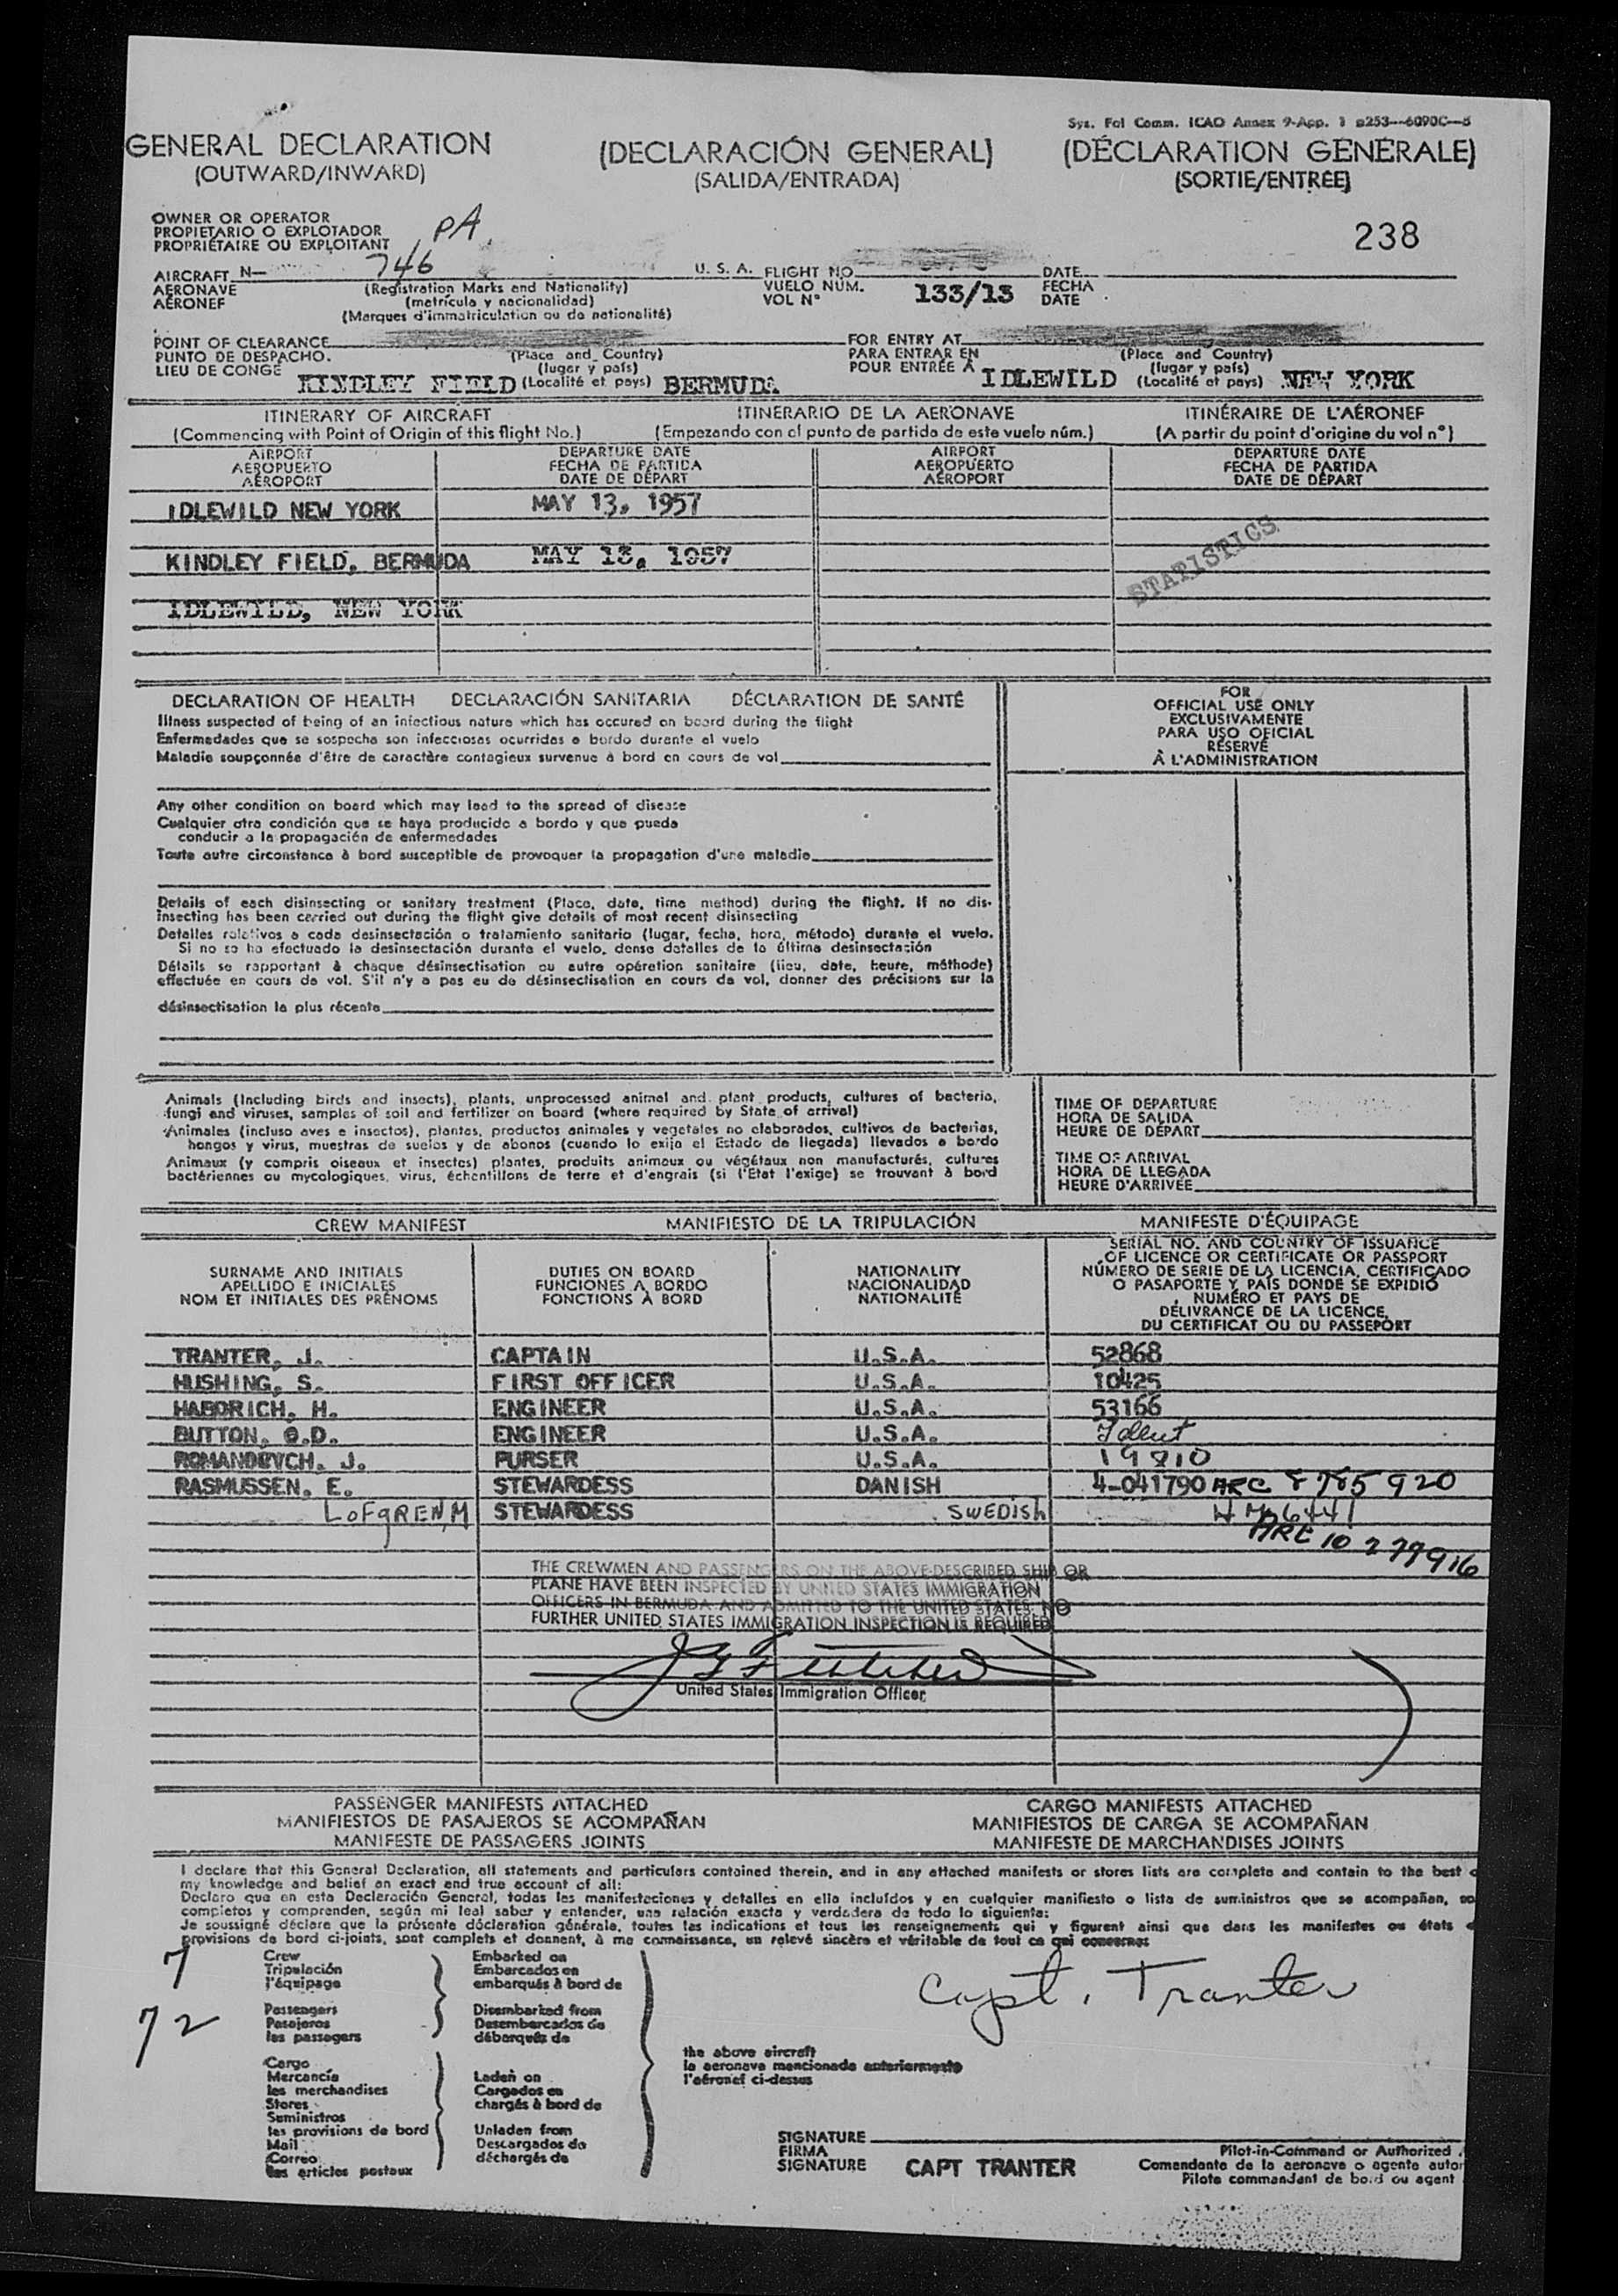 Sys. Fol Comm. ICAO Annex 9-App. 1 p253—6090C—5
GENERAL DECLARATION (DECLARACIÓN GENERAL) (DÉCLARATION GÉNÉRALE)
(OUTWARD/INWARD) (SALIDA/ENTRADA) (SORTIE/ENTRÉE)
OWNER OR OPERATOR
PROPIETARIO O EXPLOTADOR
PROPRIÉTAIRE OU EXPLOITANT
PA
238
AIRCRAFT N— 746 U. S. A. FLIGHT NO. DATE
AERONAVE (Registration Marks and Nationality) VUELO NÚM. 133/13 FECHA
AÉRONEF (matrícula y nacionalidad) VOL N° DATE
(Marques d'immatriculation ou de nationalité)
POINT OF CLEARANCE FOR ENTRY AT
PUNTO DE DESPACHO. (Place and Country) PARA ENTRAR EN (Place and Country)
LIEU DE CONGÉ (lugar y país) POUR ENTRÉE À (lugar y país)
KINDLEY FIELD (Localité et pays) BERMUDA IDLEWILD (Localité et pays) NEW YORK
ITINERARY OF AIRCRAFT ITINERARIO DE LA AERONAVE ITINÉRAIRE DE L'AÉRONEF
(Commencing with Point of Origin of this flight No.) (Empezando con el punto de partida de este vuelo núm.) (A partir du point d'origine du vol n°)
AIRPORT DEPARTURE DATE AIRPORT DEPARTURE DATE
AEROPUERTO FECHA DE PARTIDA AEROPUERTO FECHA DE PARTIDA
AÉROPORT DATE DE DÉPART AÉROPORT DATE DE DÉPART
IDLEWILD NEW YORK MAY 13, 1957
STATISTICS
KINDLEY FIELD, BERMUDA MAY 13, 1957
IDLEWILD, NEW YORK
DECLARATION OF HEALTH DECLARACIÓN SANITARIA DÉCLARATION DE SANTÉ
Illness suspected of being of an infectious nature which has occured on board during the flight
Enfermedades que se sospecha son infecciosas ocurridas a bordo durante el vuelo
Maladie soupçonnée d'être de caractère contagieux survenue à bord en cours de vol
FOR
OFFICIAL USE ONLY
EXCLUSIVAMENTE
PARA USO OFICIAL
RÉSERVÉ
À L'ADMINISTRATION
Any other condition on board which may lead to the spread of disease
Cualquier otra condición que se haya producido a bordo y que pueda
conducir a la propagación de enfermedades
Toute autre circonstance à bord susceptible de provoquer la propagation d'une maladie
Details of each disinsecting or sanitary treatment (Place, date, time method) during the flight. If no dis-
insecting has been carried out during the flight give details of most recent disinsecting
Detalles relativos a cada desinsectación o tratamiento sanitario (lugar, fecha, hora, método) durante el vuelo.
Si no se ha efectuado la desinsectación durante el vuelo, dense detalles de la última desinsectación
Détails se rapportant à chaque désinsectisation ou autre opération sanitaire (lieu, date, heure, méthode)
effectuée en cours de vol. S'il n'y a pas eu de désinsectisation en cours de vol, donner des précisions sur la
désinsectisation la plus récente
Animals (Including birds and insects), plants, unprocessed animal and plant products, cultures of bacteria,
fungi and viruses, samples of soil and fertilizer on board (where required by State of arrival)
Animales (incluso aves e insectos), plantas, productos animales y vegetales no elaborados, cultivos de bacterias,
hongos y virus, muestras de suelos y de abonos (cuando lo exija el Estado de llegada) llevados a bordo
Animaux (y compris oiseaux et insectes) plantes, produits animaux ou végétaux non manufacturés, cultures
bactériennes ou mycologiques, virus, échantillons de terre et d'engrais (si l'État l'exige) se trouvant à bord
TIME OF DEPARTURE
HORA DE SALIDA
HEURE DE DÉPART
TIME OF ARRIVAL
HORA DE LLEGADA
HEURE D'ARRIVÉE
CREW MANIFEST MANIFIESTO DE LA TRIPULACIÓN MANIFESTE D'ÉQUIPAGE
SURNAME AND INITIALS
APELLIDO E INICIALES
NOM ET INITIALES DES PRÉNOMS
DUTIES ON BOARD
FUNCIONES A BORDO
FONCTIONS À BORD
NATIONALITY
NACIONALIDAD
NATIONALITÉ
SERIAL NO. AND COUNTRY OF ISSUANCE
OF LICENCE OR CERTIFICATE OR PASSPORT
NÚMERO DE SERIE DE LA LICENCIA, CERTIFICADO
O PASAPORTE Y PAÍS DONDE SE EXPIDIÓ
NUMÉRO ET PAYS DE
DÉLIVRANCE DE LA LICENCE,
DU CERTIFICAT OU DU PASSEPORT
TRANTER, J. CAPTAIN U.S.A. 52868
HUSHING, S. FIRST OFFICER U.S.A. 10425
HABDRICH, H. ENGINEER U.S.A. 53166
BUTTON, O.D. ENGINEER U.S.A. Ident
ROMANDEVCH, J. PURSER U.S.A. 19810
RASMUSSEN, E. STEWARDESS DANISH 4-041790 ARC 8 785 920
LOFGREN, M STEWARDESS SWEDISH
ARC 10 277916
THE CREWMEN AND PASSENGERS ON THE ABOVE-DESCRIBED SHIP OR
PLANE HAVE BEEN INSPECTED BY UNITED STATES IMMIGRATION
OFFICERS IN BERMUDA AND ADMITTED TO THE UNITED STATES. NO
FURTHER UNITED STATES IMMIGRATION INSPECTION IS REQUIRED
United States Immigration Officer
PASSENGER MANIFESTS ATTACHED CARGO MANIFESTS ATTACHED
MANIFIESTOS DE PASAJEROS SE ACOMPAÑAN MANIFIESTOS DE CARGA SE ACOMPAÑAN
MANIFESTE DE PASSAGERS JOINTS MANIFESTE DE MARCHANDISES JOINTS
I declare that this General Declaration, all statements and particulars contained therein, and in any attached manifests or stores lists are complete and contain to the best
my knowledge and belief an exact and true account of all:
Declaro que en esta Declaración General, todas las manifestaciones y detalles en ella incluídos y en cualquier manifiesto o lista de suministros que se acompañan,
completos y comprenden, según mi leal saber y entender, una relación exacta y verdadera de todo lo siguiente:
Je soussigné déclare que la présente déclaration générale, toutes les indications et tous les renseignements qui y figurent ainsi que dans les manifestes ou états
provisions de bord ci-joints, sont complets et donnent, à ma connaissance, un relevé sincère et véritable de tout ce qui concerne:
7
Crew
Tripulación
l'équipage
Embarked on
Embarcados en
embarqués à bord de
Capt. Tranter
72
Passengers
Pasajeros
les passagers
Disembarked from
Desembarcados de
débarqués de
the above aircraft
la aeronave mencionada anteriormente
l'aéronef ci-dessus
Cargo
Mercancía
les merchandises
Stores
Suministros
les provisions de bord
Mail
Correo
les articles postaux
Laden on
Cargados en
chargés à bord de
Unladen from
Descargados de
déchargés de
SIGNATURE
FIRMA
SIGNATURE CAPT TRANTER
Pilot-in-Command or Authorized
Comandante de la aeronave o agente autor
Pilote commandant de bord ou agent